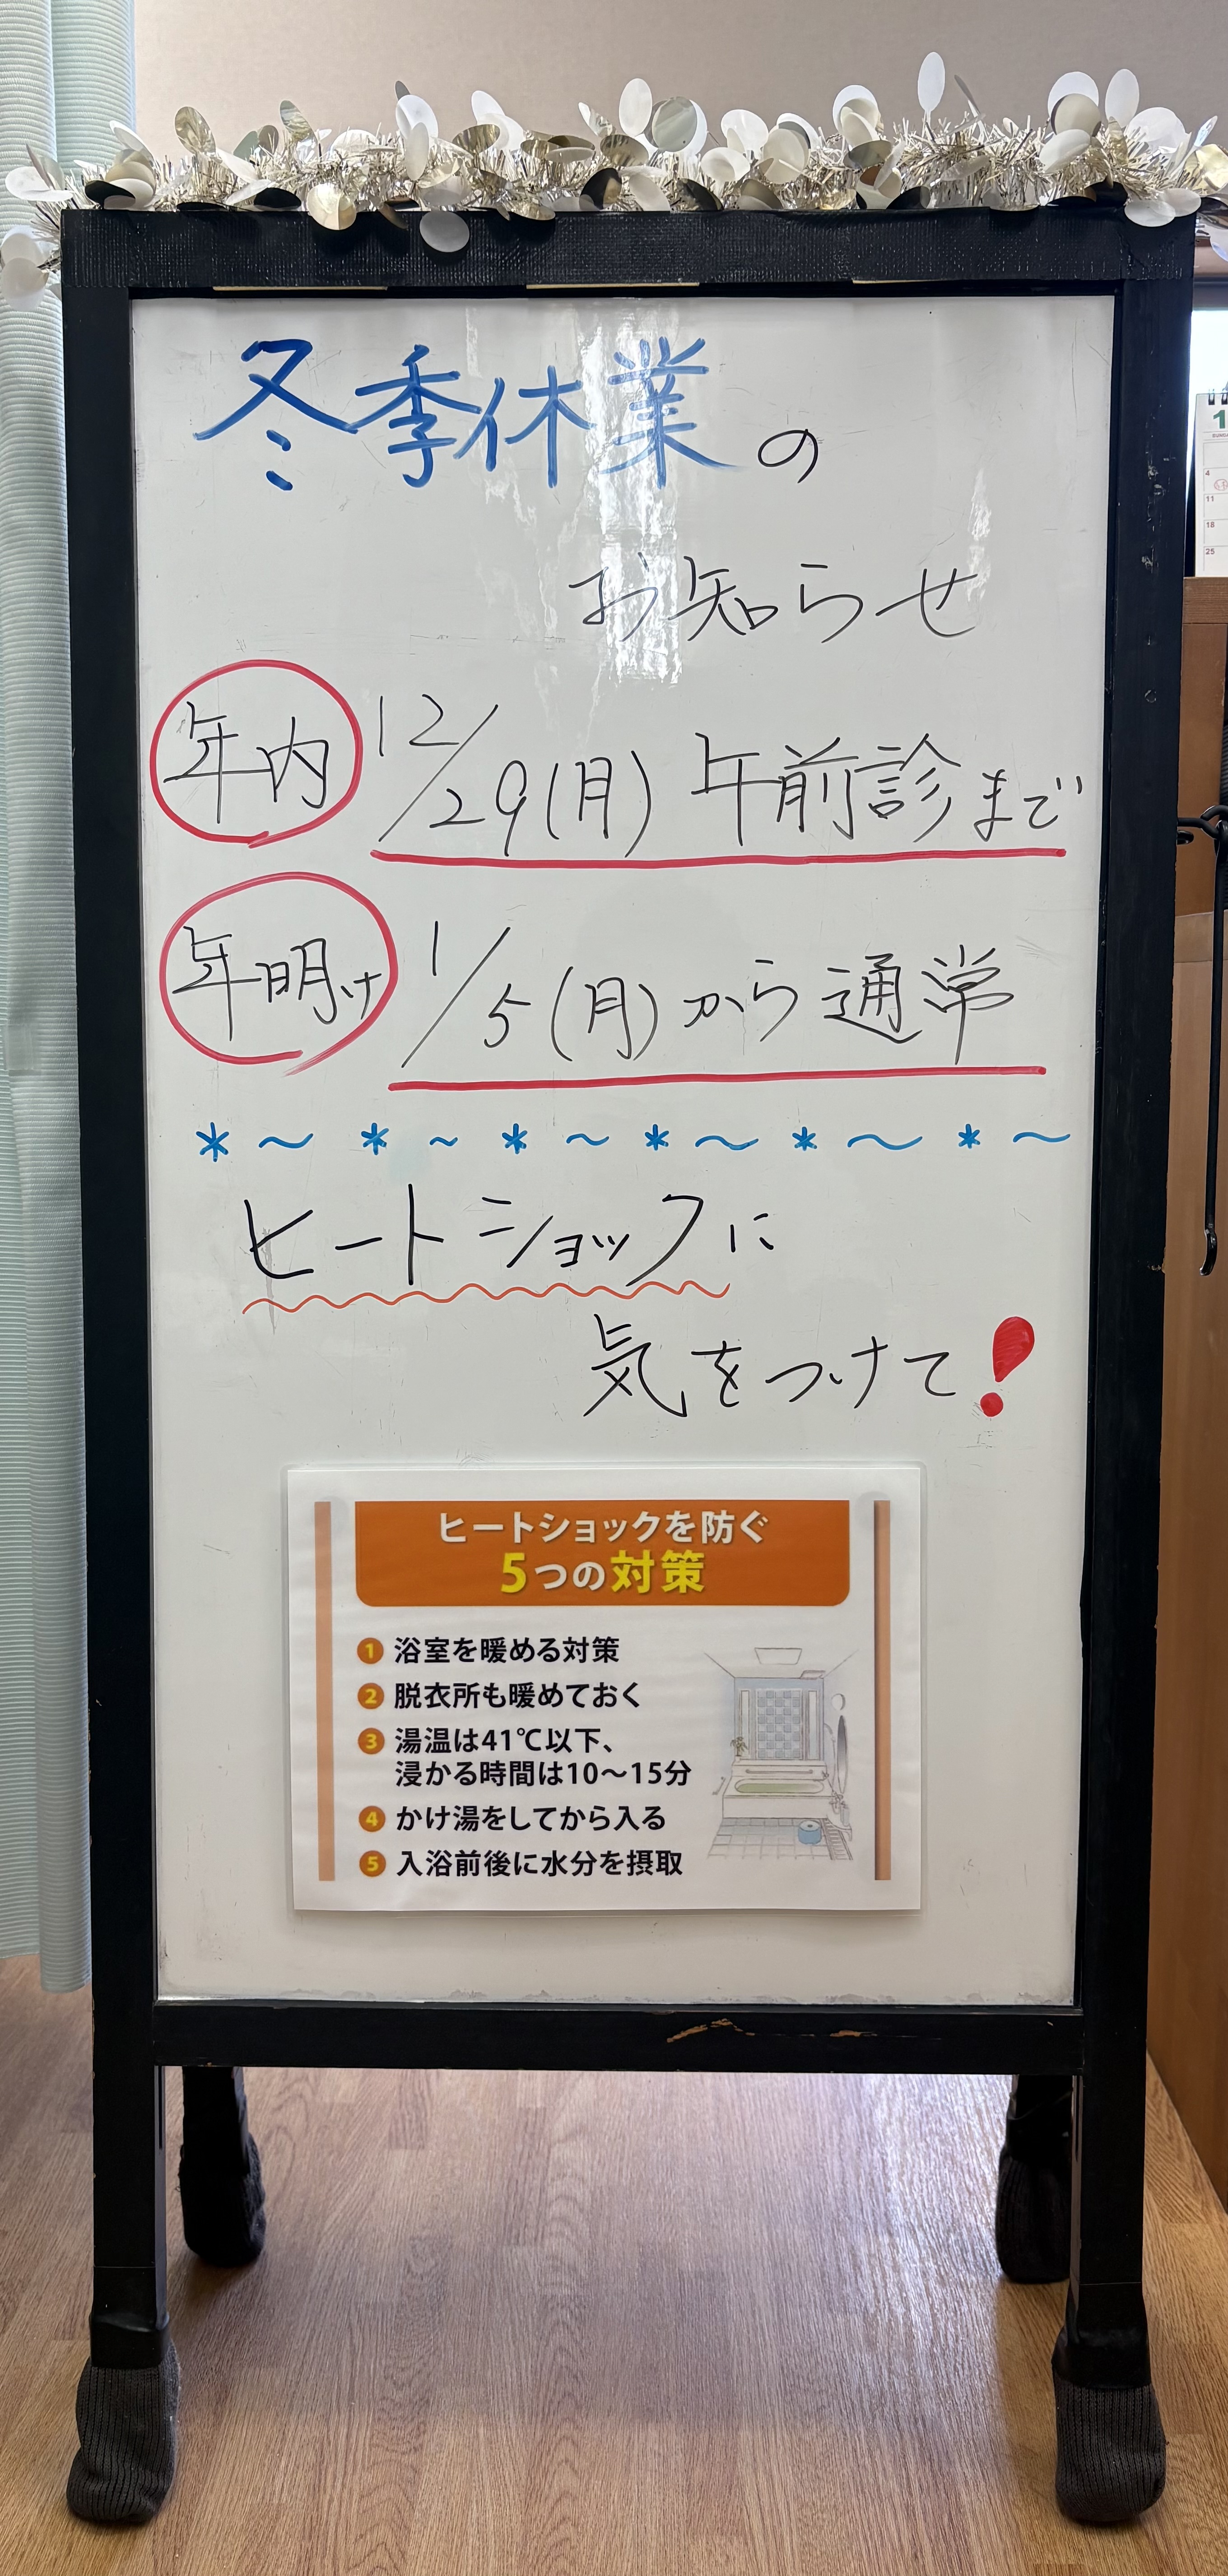 冬季休業の
お知らせ
年内 12/29(月) 午前診まで
年明け 1/5(月)から通常
*～*～*～*～*～*～
ヒートショックに
気をつけて!
ヒートショックを防ぐ
5つの対策
1 浴室を暖める対策
2 脱衣所も暖めておく
3 湯温は41℃以下、
浸かる時間は10～15分
4 かけ湯をしてから入る
5 入浴前後に水分を摂取
1
4
11
18
25